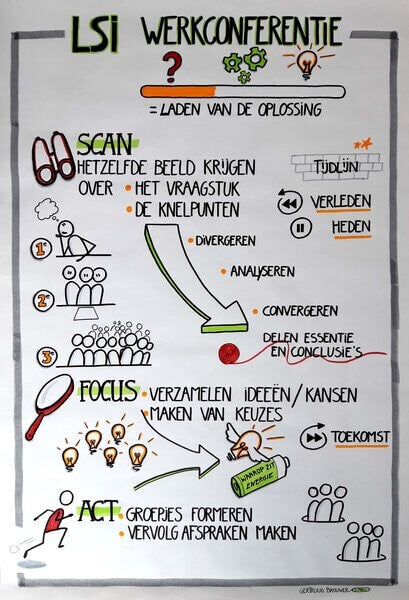 LSi WERKCONFERENTIE
?
= LADEN VAN DE OPLOSSING
SCAN
HETZELFDE BEELD KRIJGEN
OVER • HET VRAAGSTUK
• DE KNELPUNTEN
TIJDLIJN
VERLEDEN
HEDEN
1e
2e
3e
• DIVERGEREN
• ANALYSEREN
• CONVERGEREN
DELEN ESSENTIE
EN CONCLUSIE'S
FOCUS • VERZAMELEN IDEEËN/KANSEN
• MAKEN VAN KEUZES
TOEKOMST
WAAROP ZIT
ENERGIE
ACT • GROEPJES FORMEREN
• VERVOLG AFSPRAKEN MAKEN
GERTRUUD BROUWER